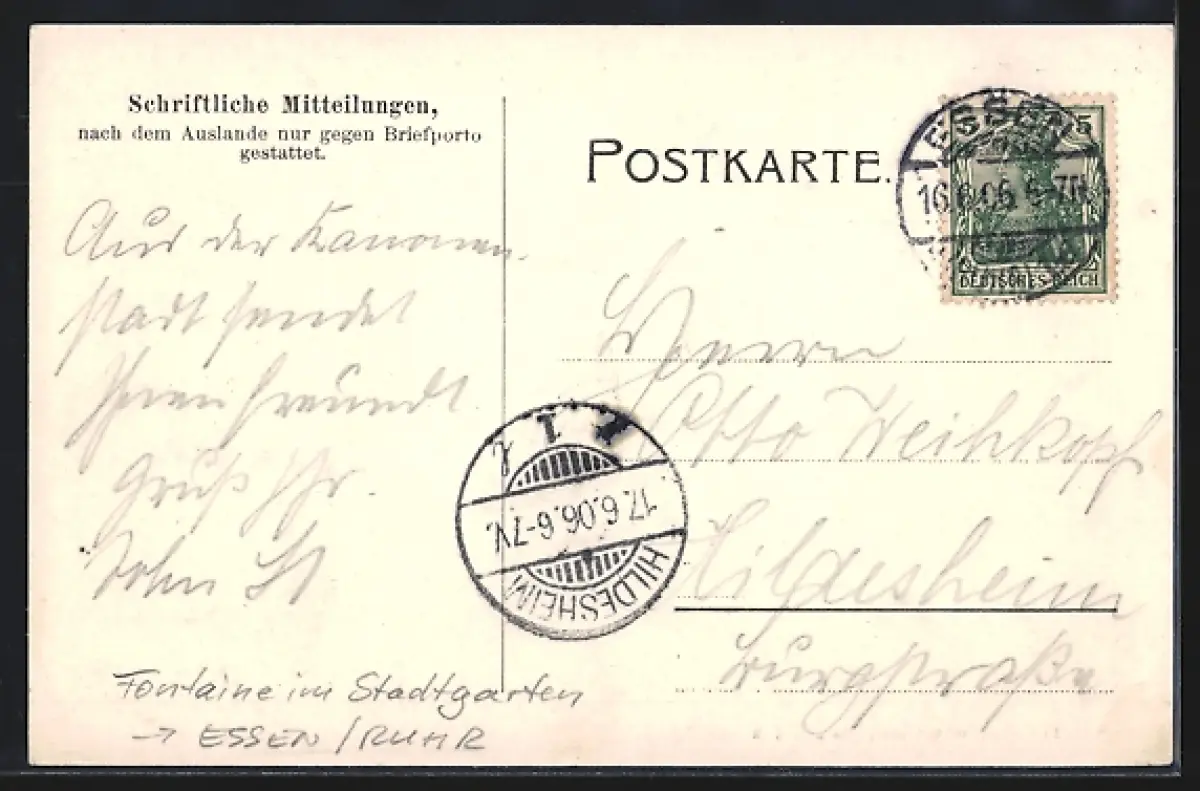 Schriftliche Mitteilungen,
nach dem Auslande nur gegen Briefporto
gestattet.
POSTKARTE.
5
ESSEN
16.6.06 6-7N
DEUTSCHES REICH
Aus der Kanonen-
stadt sendet
Ihren Freund
Gruß Ihr.
Herrn
Otto Weihkopf
Hildesheim
Burgstraße
17.6.06.6-7V.
HILDESHEIM
Fontaine im Stadtgarten
→ ESSEN / RUHR